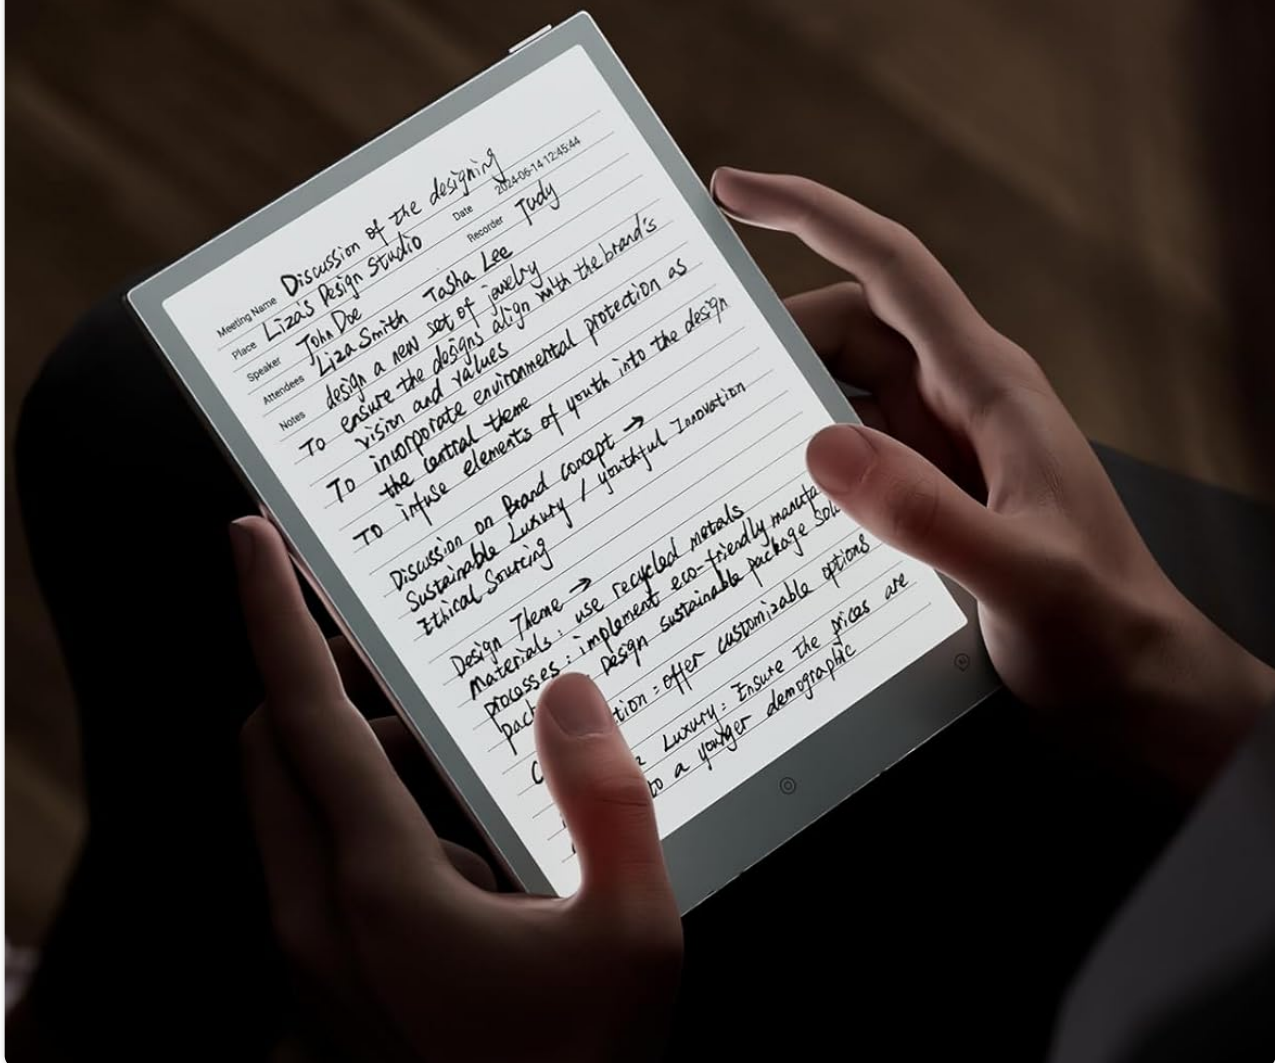 Meeting Name Discussion of the designing
Place Liza's Design Studio Date 2024-06-14 12:45:44
Speaker John Doe Recorder Judy
Attendees Liza Smith Tasha Lee
Notes design a new set of jewelry
To ensure the designs align with the brand's
vision and values
To incorporate environmental protection as
the central theme
To infuse elements of youth into the design
Discussion on Brand concept →
Sustainable Luxury / Youthful Innovation
Ethical Sourcing
Design Theme →
materials: use recycled metals
processes: implement eco-friendly
Design sustainable package
: offer customizable options
Luxury: Ensure the prices are
to a younger demographic